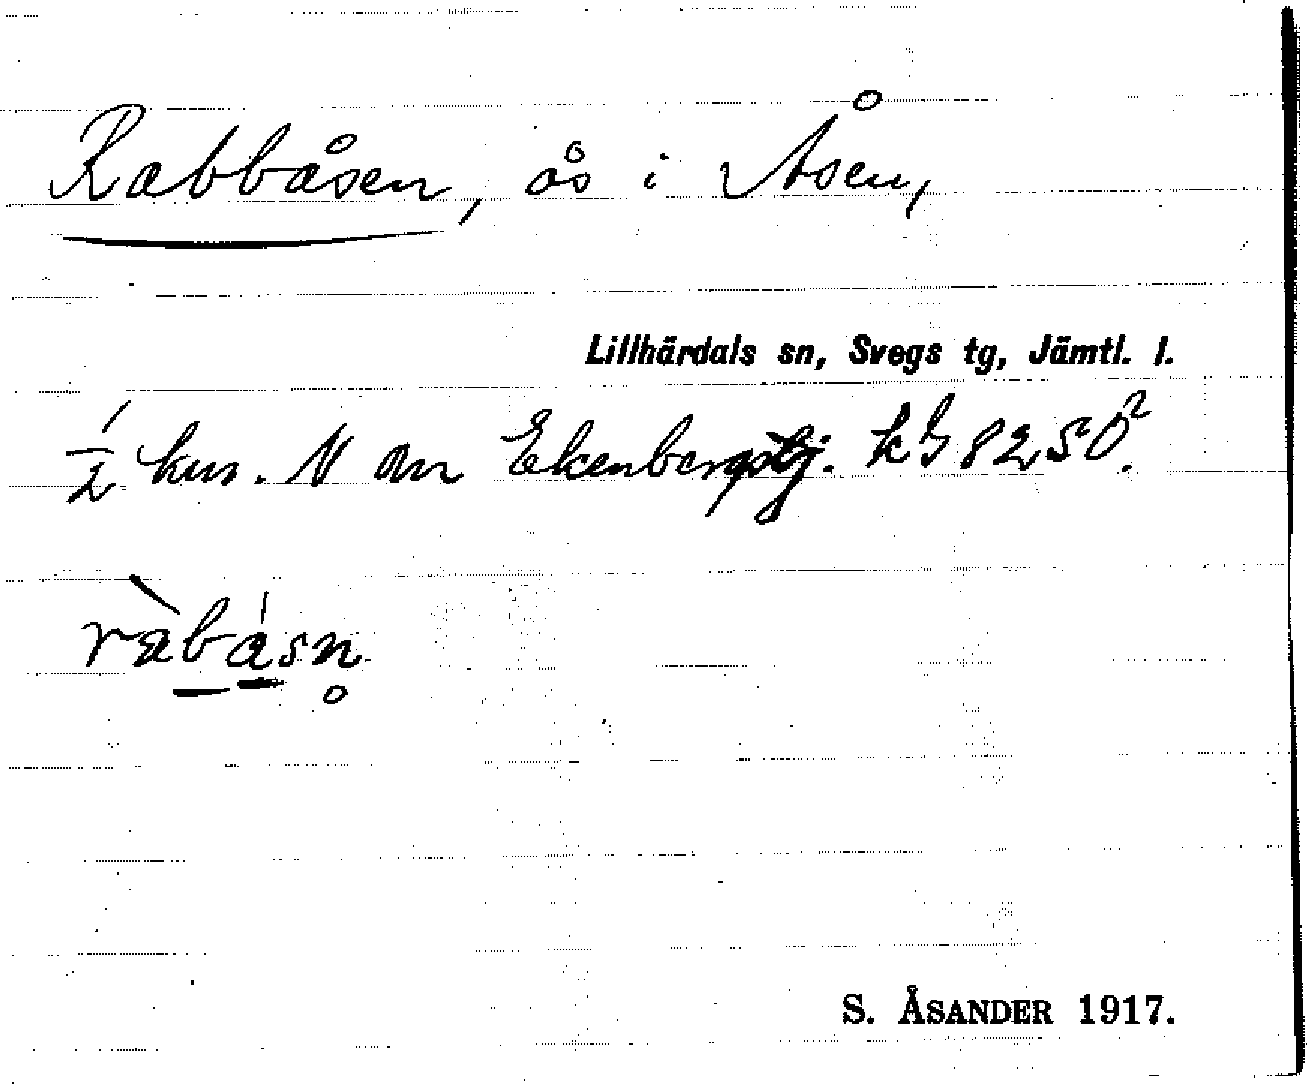 Rabbåsen, ås i Åsen,
Lillhärdals sn, Svegs tg, Jämtl. l.
1/2 km. N om Ekenbergstj.
råbåsn̥
S. ÅSANDER 1917.